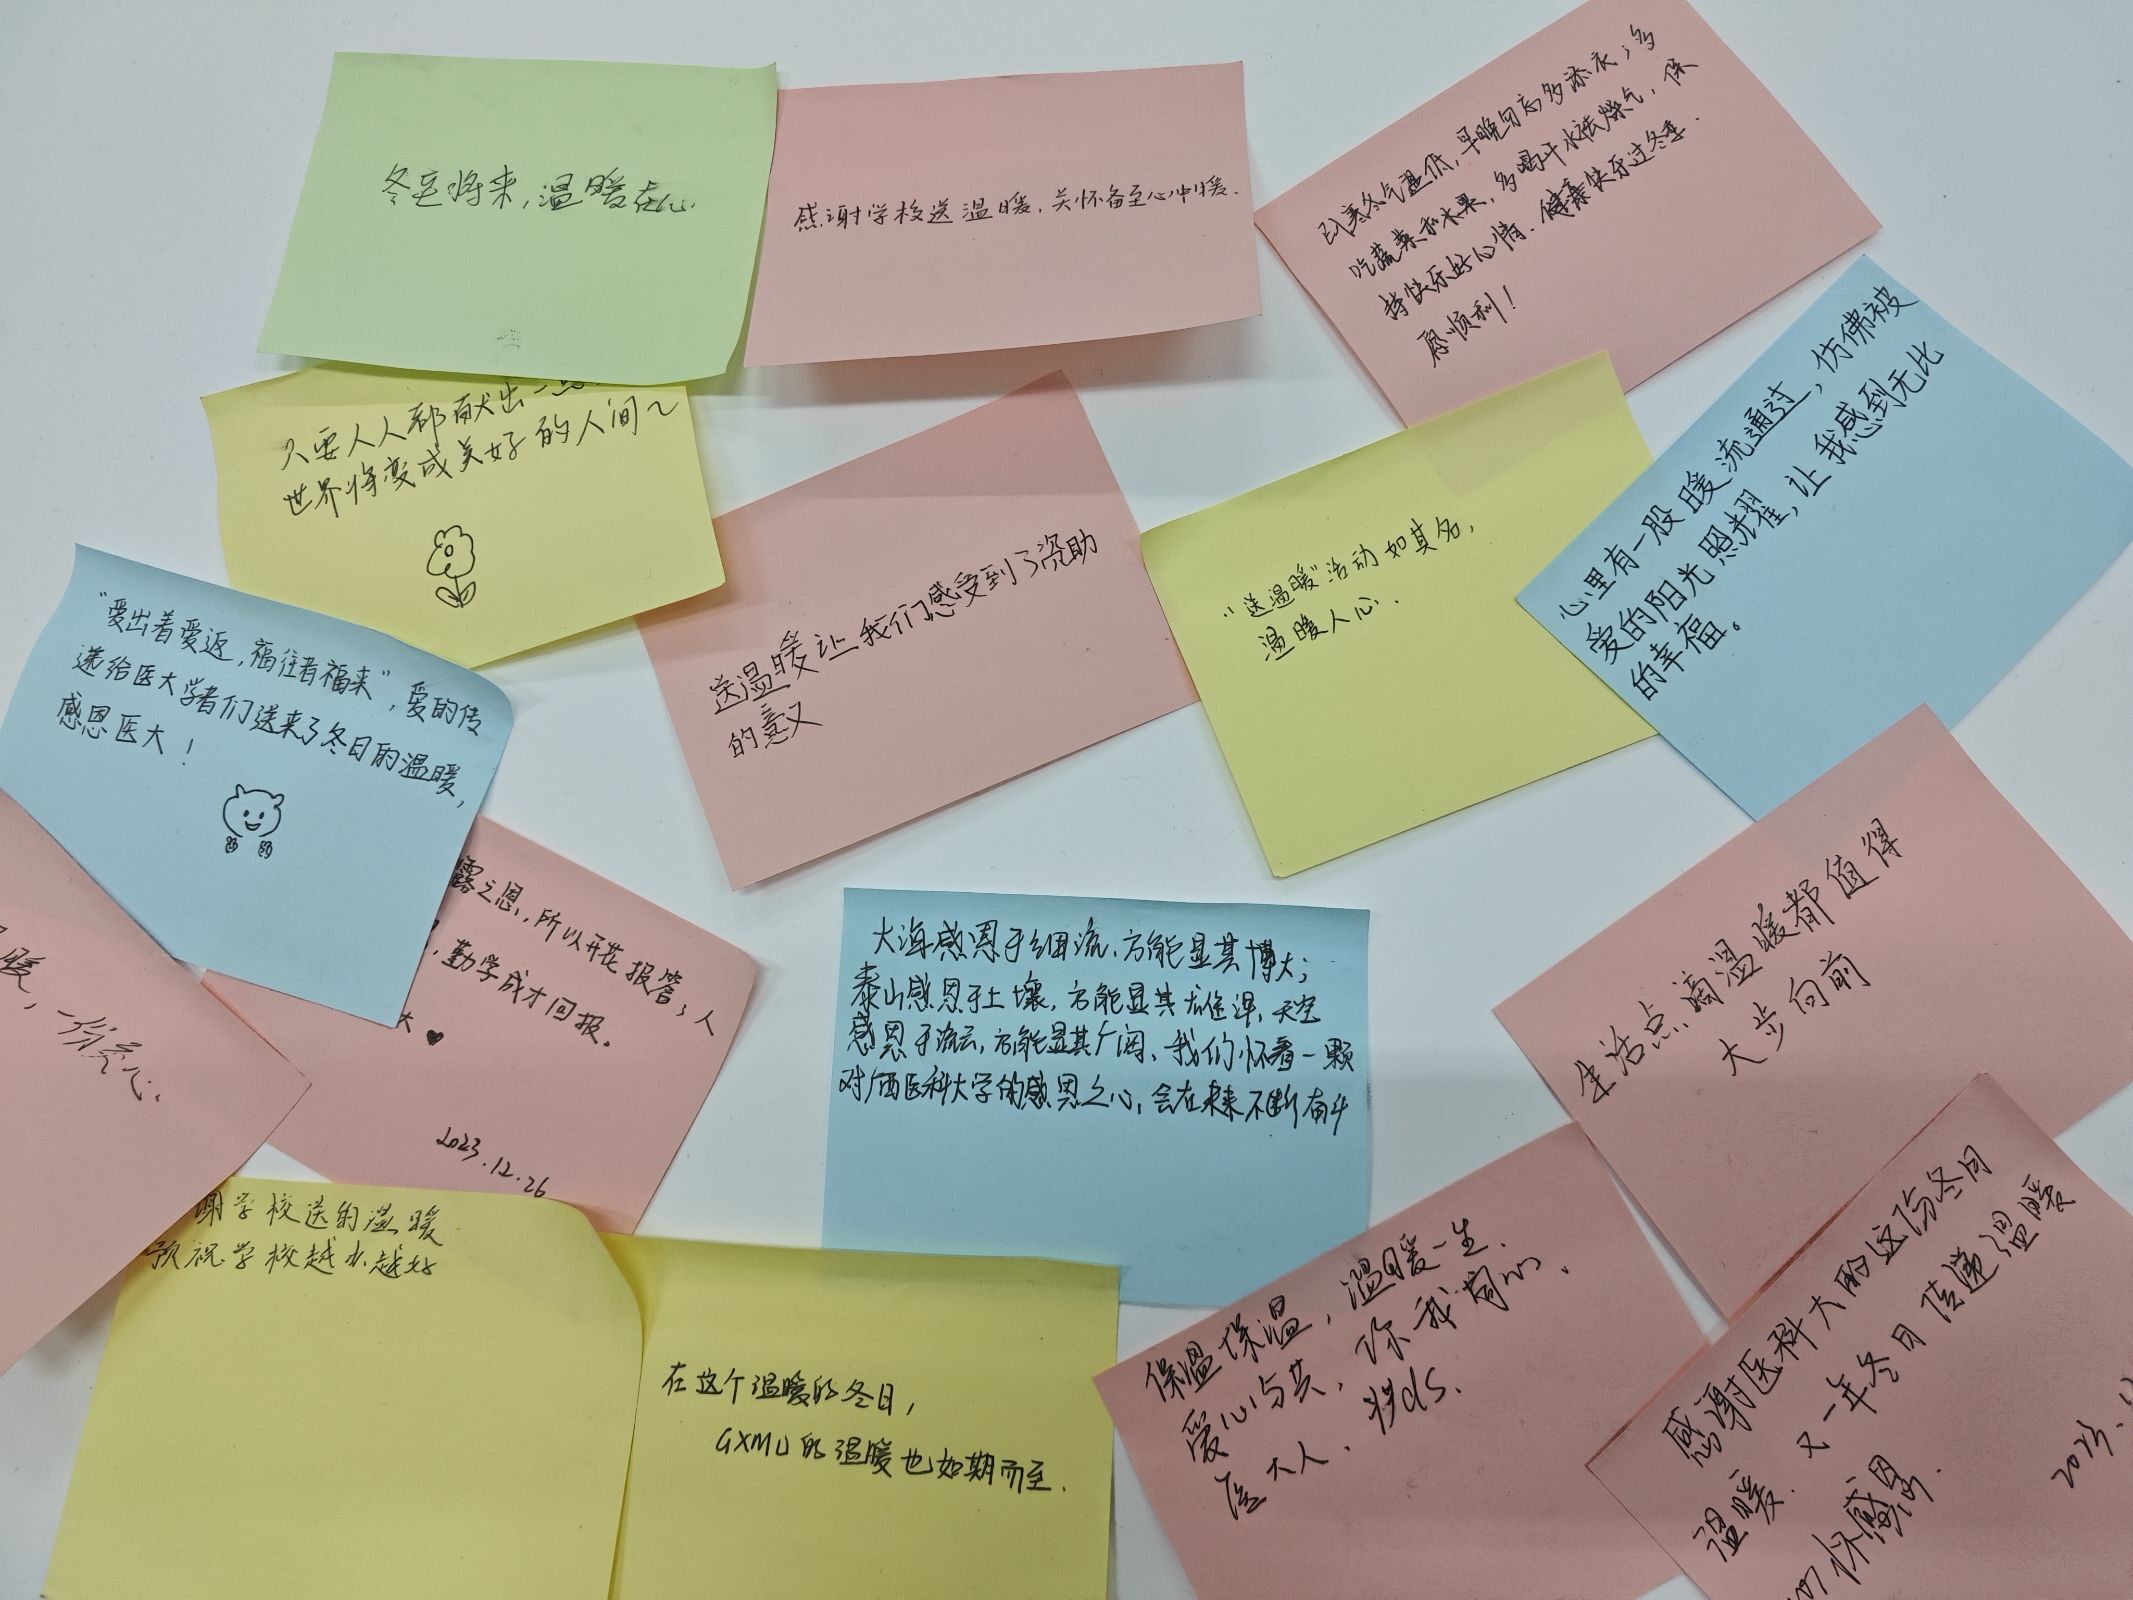 冬至将来，温暖在心.
感谢学校送温暖，关怀备至心中暖.
到寒冬气温低，早晚勿忘多添衣，多
吃蔬菜和水果，多喝开水祛燥气，保
持快乐好心情，健康快乐过冬季.
愿顺利！
只要人人都献出一点
世界将变成美好的人间～
送温暖让我们感受到了资助
的意义
“送温暖”活动如其名，
温暖人心.
心里有一股暖流通过，仿佛被
爱的阳光照耀，让我感到无比
的幸福。
“爱出着爱返，福往者福来”，爱的传
递给医大学者们送来了冬日的温暖，
感恩医大！
暖，一份爱心.
露之恩，所以开花报答；人
，勤学成才回报.
大♥
2023.12.26
大海感恩于细流，方能显其博大；
泰山感恩于土壤，方能显其雄浑，天空
感恩于流云，方能显其广阔、我们怀着一颗
对广西医科大学的感恩之心，会在未来不断奋斗
生活点滴温暖都值得
大步向前
谢学校送的温暖
预祝学校越办越好
在这个温暖的冬日，
GXMU的温暖也如期而至.
保温保温，温暖一生.
爱心与共，你我同心.
医大人.
感谢医科大的这份冬日
温暖. 又一年冬日传递温暖
怀感恩.
2023.